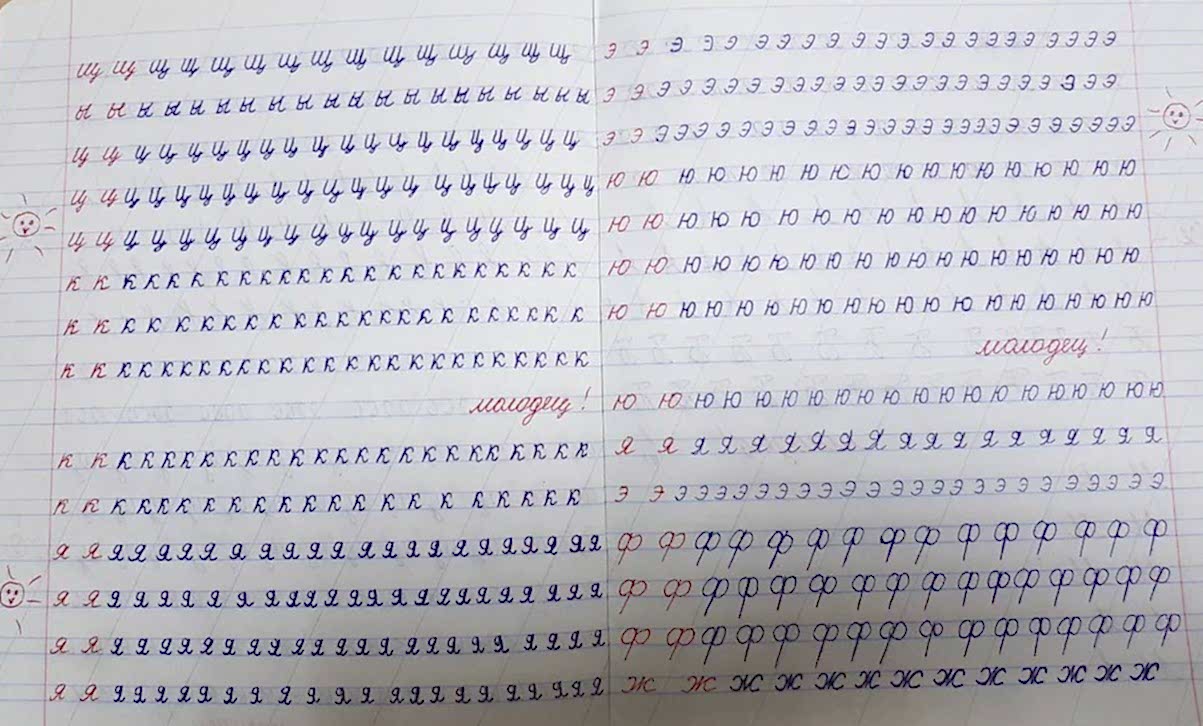 щ щ щ щ щ щ щ щ щ щ щ щ щ щ щ
ы ы ы ы ы ы ы ы ы ы ы ы ы ы ы ы ы ы ы ы
ц ц ц ц ц ц ц ц ц ц ц ц ц ц ц ц ц ц ц ц
ц ц ц ц ц ц ц ц ц ц ц ц ц ц ц ц ц ц ц ц ц
ц ц ц ц ц ц ц ц ц ц ц ц ц ц ц ц ц ц ц ц
к к к к к к к к к к к к к к к к к к к к к к
к к к к к к к к к к к к к к к к к к к к к к
к к к к к к к к к к к к к к к к к к к к к к к к к
молодец!
к к к к к к к к к к к к к к к к к к к к к к к к
к к к к к к к к к к к к к к к к к к к к к к
я я я я я я я я я я я я я я я я я я я я я я я
я я я я я я я я я я я я я я я я я я я я я я я я
я я я я я я я я я я я я я я я я я я я я я я
я я я я я я я я я я я я я я я я я я я я я я я
э э э э э э э э э э э э э э э э э э э э э э
э э э э э э э э э э э э э э э э э э э э э э э э
э э э э э э э э э э э э э э э э э э э э э э э э
ю ю ю ю ю ю ю ю ю ю ю ю ю ю ю ю ю ю
ю ю ю ю ю ю ю ю ю ю ю ю ю ю ю ю ю ю
ю ю ю ю ю ю ю ю ю ю ю ю ю ю ю ю ю ю ю
ю ю ю ю ю ю ю ю ю ю ю ю ю ю ю ю ю ю ю ю
молодец!
ю ю ю ю ю ю ю ю ю ю ю ю ю ю ю ю ю ю ю ю
я я я я я я я я я я я я я я я я я я я
э э э э э э э э э э э э э э э э э э э э э э
ф ф ф ф ф ф ф ф ф ф ф ф ф ф ф
ф ф ф ф ф ф ф ф ф ф ф ф ф ф ф ф
ф ф ф ф ф ф ф ф ф ф ф ф ф ф ф ф
ж ж ж ж ж ж ж ж ж ж ж ж ж